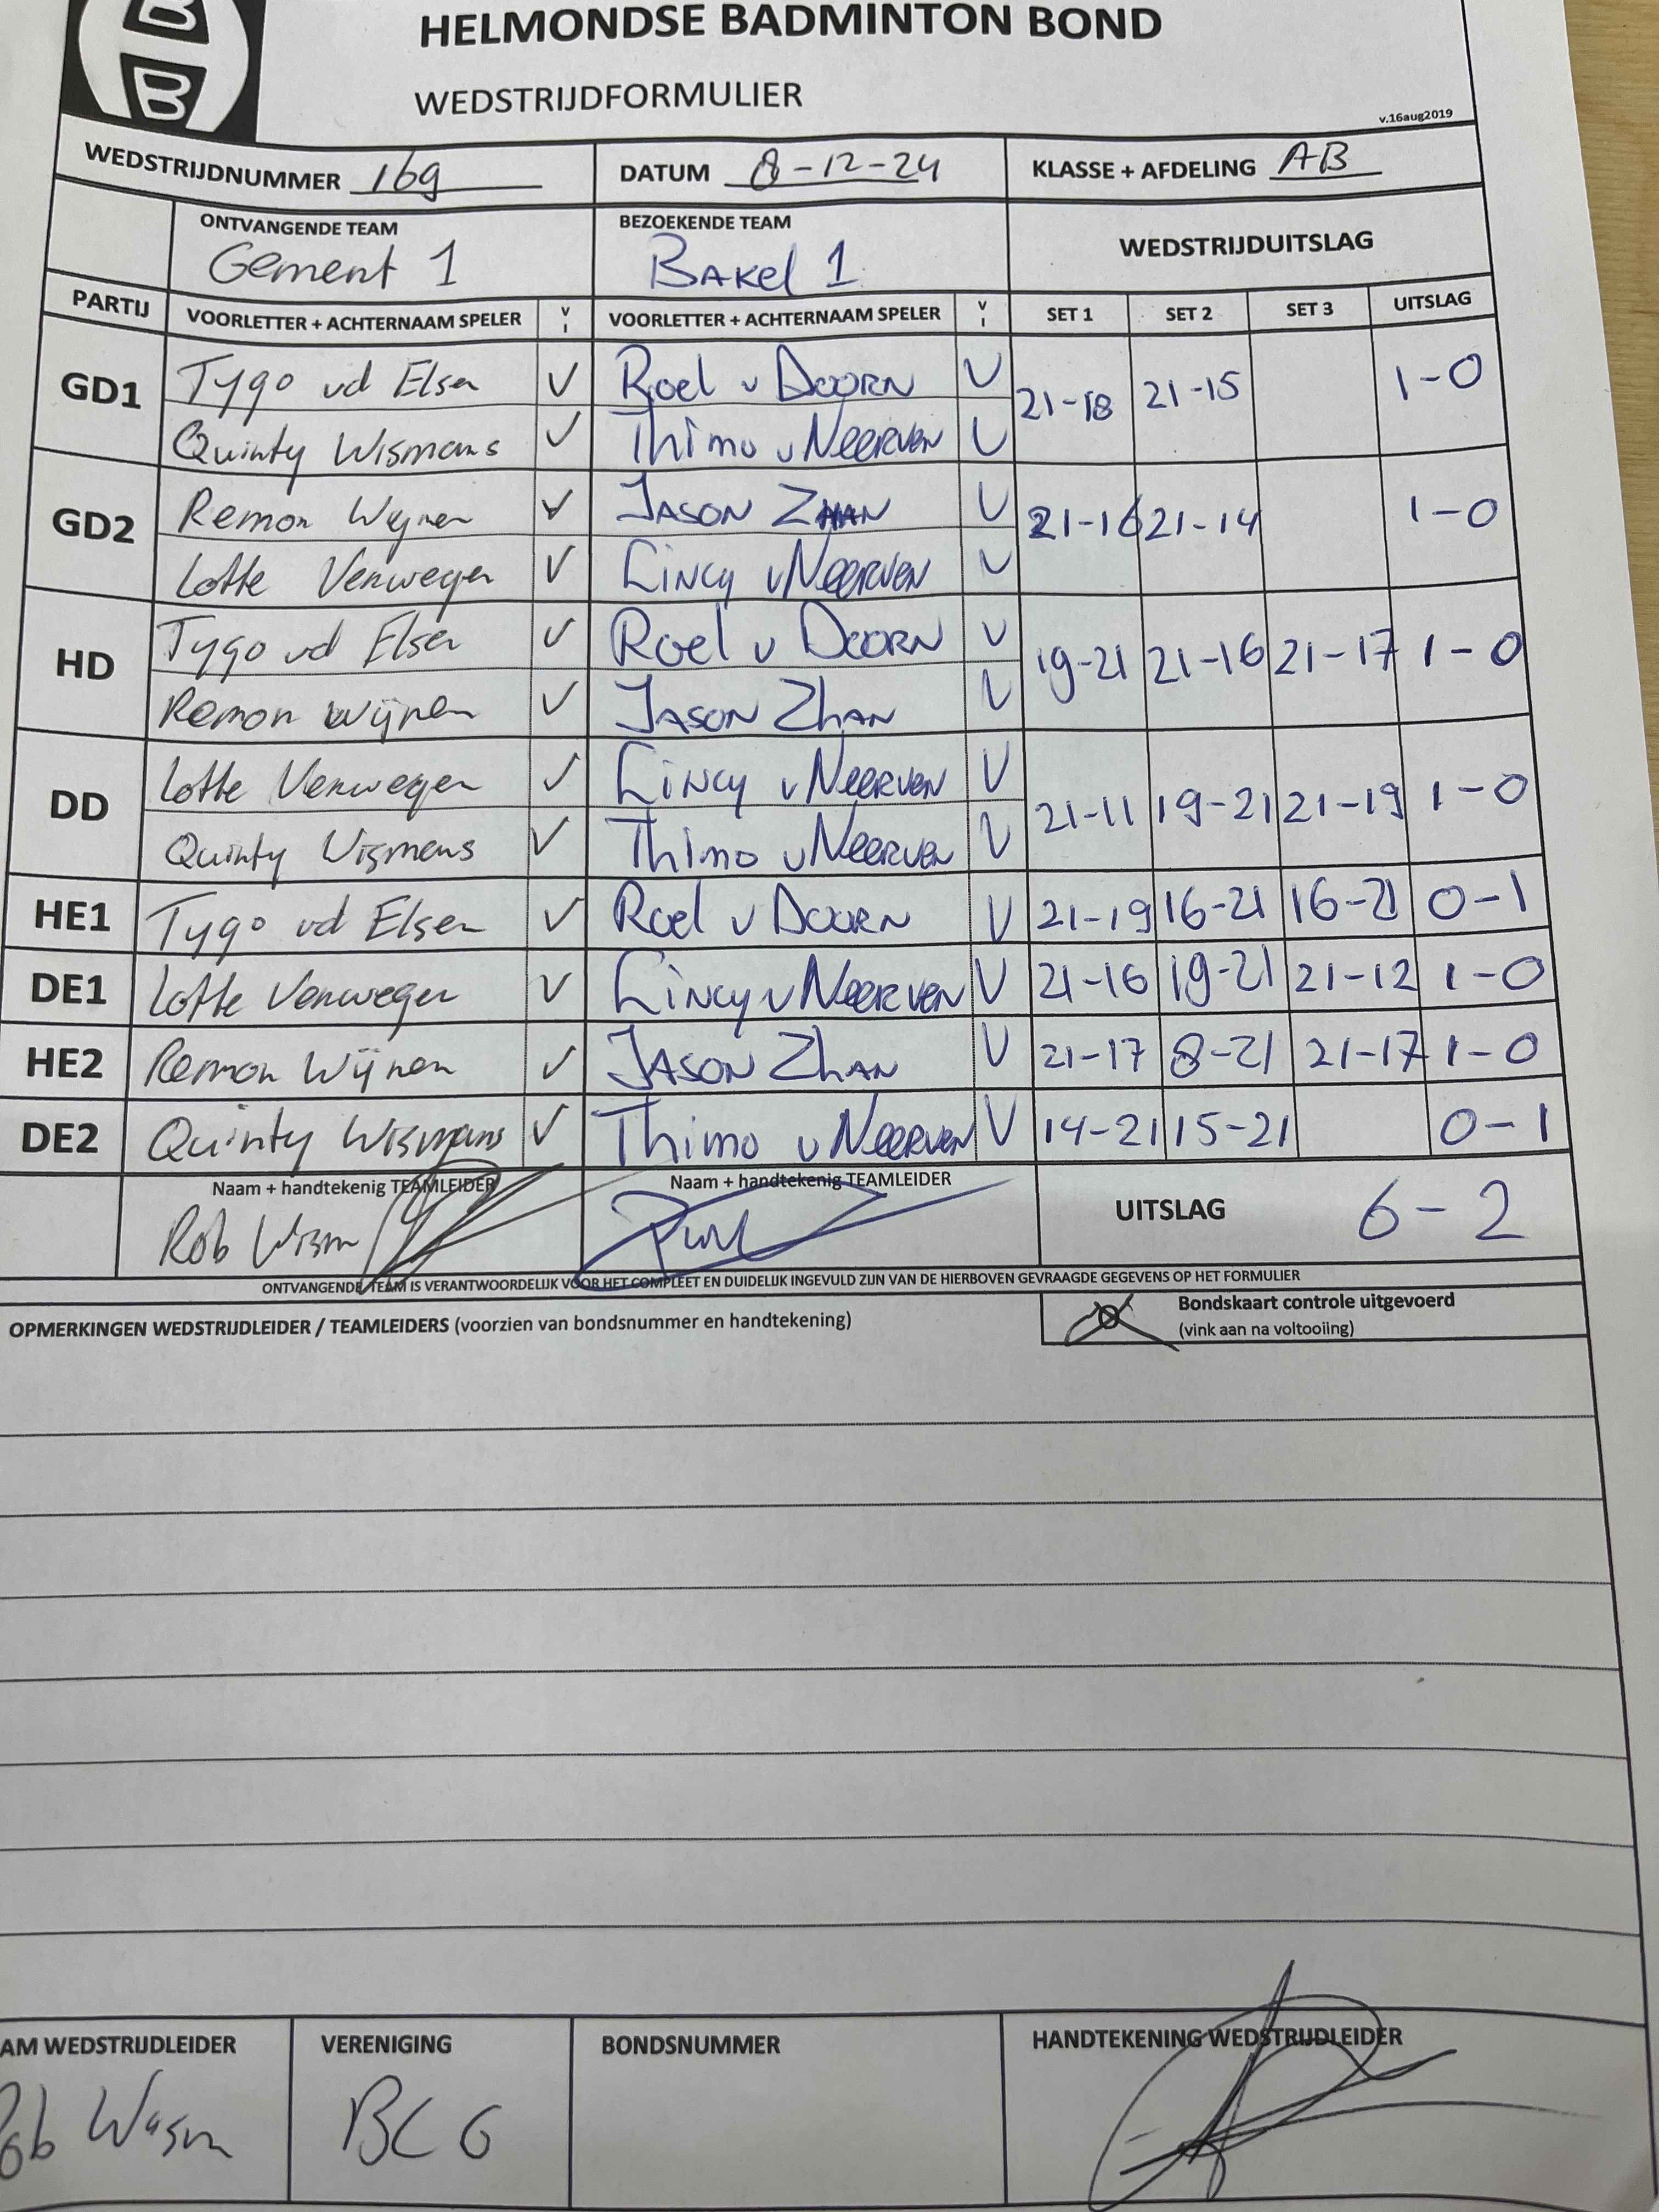 B
B
HELMONDSE BADMINTON BOND
WEDSTRIJDFORMULIER
v.16aug2019
WEDSTRIJDNUMMER 169 DATUM 8-12-24 KLASSE + AFDELING AB
ONTVANGENDE TEAM BEZOEKENDE TEAM WEDSTRIJDUITSLAG
Gement 1 BAKel 1
PARTIJ VOORLETTER + ACHTERNAAM SPELER V I VOORLETTER + ACHTERNAAM SPELER V I SET 1 SET 2 SET 3 UITSLAG
GD1 Tygo vd Elsen V Roel v DOORN V 21-18 21-15 1-0
Quinty Wismans V Thimo v NEERVEN V
GD2 Remon Wijnen V JASON ZHAN V 21-16 21-14 1-0
Lotte Verwegen V Lincy v NEERVEN V
HD Tygo vd Elsen V Roel v DOORN V 19-21 21-16 21-17 1-0
Remon Wijnen V JASON ZhAN V
DD Lotte Verwegen V Lincy v NEERVEN V 21-11 19-21 21-19 1-0
Quinty Wismans V Thimo v NEERVEN V
HE1 Tygo vd Elsen V Roel v DOORN V 21-19 16-21 16-21 0-1
DE1 Lotte Verwegen V Lincy v NEERVEN V 21-16 19-21 21-12 1-0
HE2 Remon Wijnen V JASON ZhAN V 21-17 8-21 21-17 1-0
DE2 Quinty Wismans V Thimo v NEERVEN V 14-21 15-21 0-1
Naam + handtekenig TEAMLEIDER Naam + handtekenig TEAMLEIDER UITSLAG 6-2
Rob Wism
ONTVANGENDE TEAM IS VERANTWOORDELIJK VOOR HET COMPLEET EN DUIDELIJK INGEVULD ZIJN VAN DE HIERBOVEN GEVRAAGDE GEGEVENS OP HET FORMULIER
OPMERKINGEN WEDSTRIJDLEIDER / TEAMLEIDERS (voorzien van bondsnummer en handtekening) Bondskaart controle uitgevoerd
(vink aan na voltooiing)
AM WEDSTRIJDLEIDER VERENIGING BONDSNUMMER HANDTEKENING WEDSTRIJDLEIDER
Rob Wism BCG